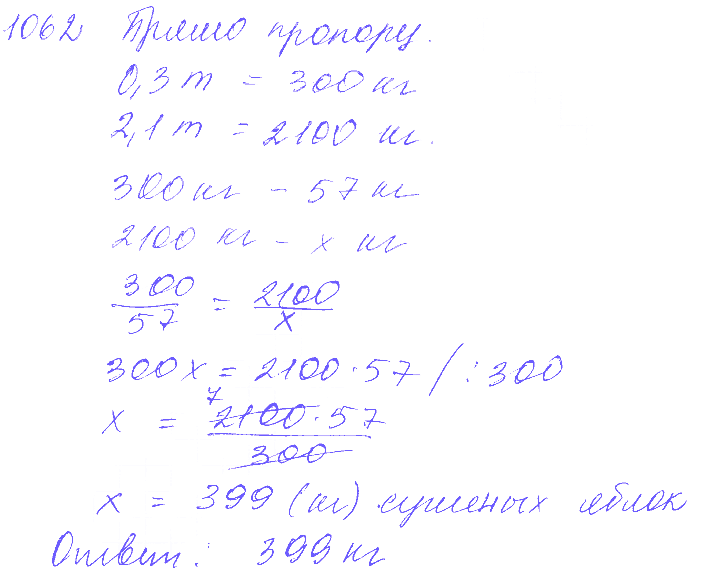 1062 Прямо пропорц.
0,3 т = 300 кг
2,1 т = 2100 кг.
300 кг - 57 кг
2100 кг - x кг
300/57 = 2100/x
300x = 2100·57 /:300
x = 2100·57/300 7
x = 399 (кг) сушеных яблок
Ответ: 399 кг